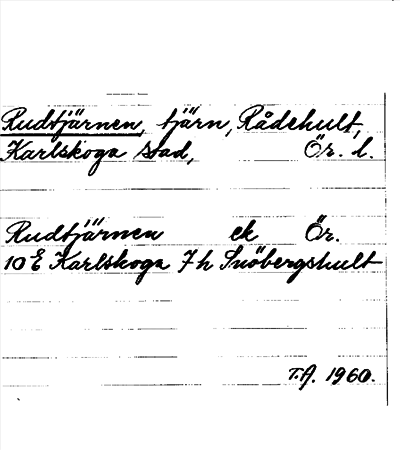 Rudtjärnen, tjärn, Rådehult,
Karlskoga stad, Ör. l.
Rudtjärnen ek Ör.
10 E Karlskoga 7 h Snöbergshult
T.A. 1960.